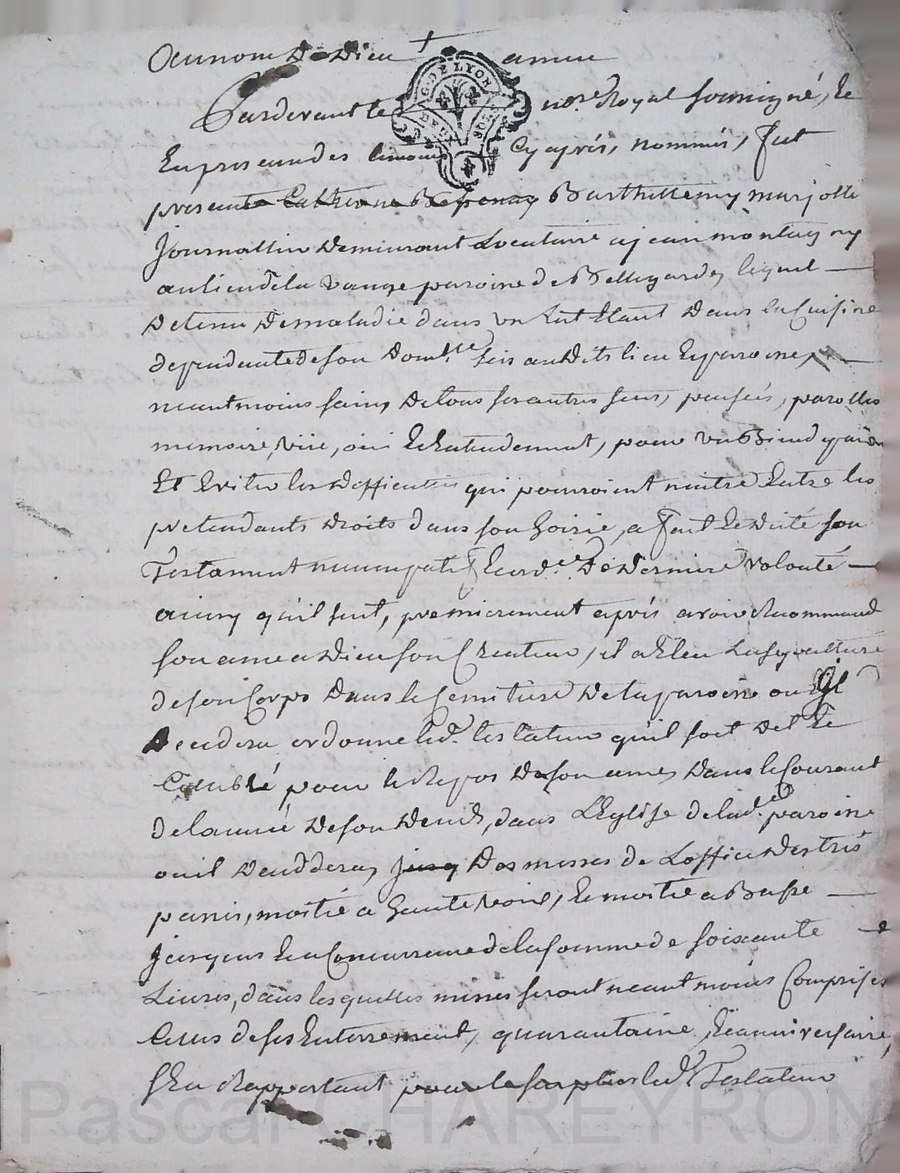 Au nom De Dieu + amen
G. DE LYON
DEUX SOLS
Pardevant le nore Royal soussigné, Et
En presence des temoins Cy après, nommés, fut
present Catherine Barthellemy marjolle
Journallier Demeurant Locataire a jean montagny
au lieu de la paroisse de Bellegarde, lequel
Detenu De maladie dans un Lit Etant Dans la Cuisine
dependante de son Domlle sis audits lieu Et paroisse,
neantmoins sain, De tous ses autres sens, pensées, parolles
memoire, vüe, oui Et Entendement, pour
Et Eviter les Difficultés qui pourroient naitre Entre les
pretendants Droits dans son hoirie, a fait Et Dicté son
Testament nuncupatif Et ord.re De Derniere volonté
ainsy qu'il suit, premierement après avoir Recommandé
son ame a Dieu son Createur, il a Eleu La sepulture
de son Corps Dans le Cemetiere De la paroisse ou il
Deceddera ordonne led. testateur qu'il soit
Celebré pour le Repos De son ame, Dans le Courant
de l'année De son Deced, dans L'Eglise de lad. paroisse
ou il Deceddera, jusq Des messes de L'office Des tres
passés, moitié a haute voix, Et moitié a Basse
jusques En Concurrance de la somme de soixante
Livres, dans lesquelles messes seront neantmoins Comprises
Celles de ses Enterrement, quarantaine, Et anniversaire,
s'En Rapportant pour le surplus led. Testateur
Pascal CHAREYRON